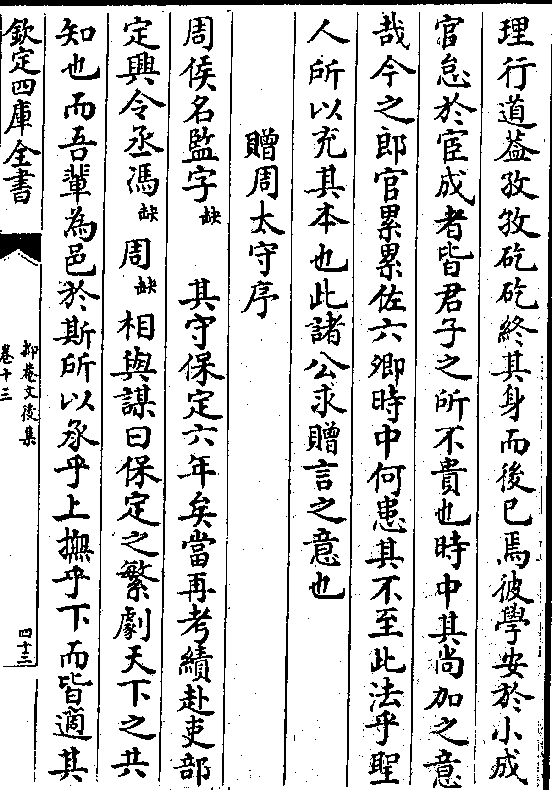 理行道葢孜孜矻矻終其身而後已焉彼學安於小成
官怠於宦成者皆君子之所不貴也時中其尚加之意
哉今之郎官累累佐六卿時中何患其不至此法乎聖
人所以充其本也此諸公求贈言之意也
贈周太守序
周侯名監字缺 其守保定六年矣當再考績赴吏部
定興令丞馮缺 周缺 相與謀曰保定之繁劇天下之共
知也而吾輩為邑於斯所以承乎上撫乎下而皆適其
欽定四庫全書
抑菴文後集
卷十三
四十三